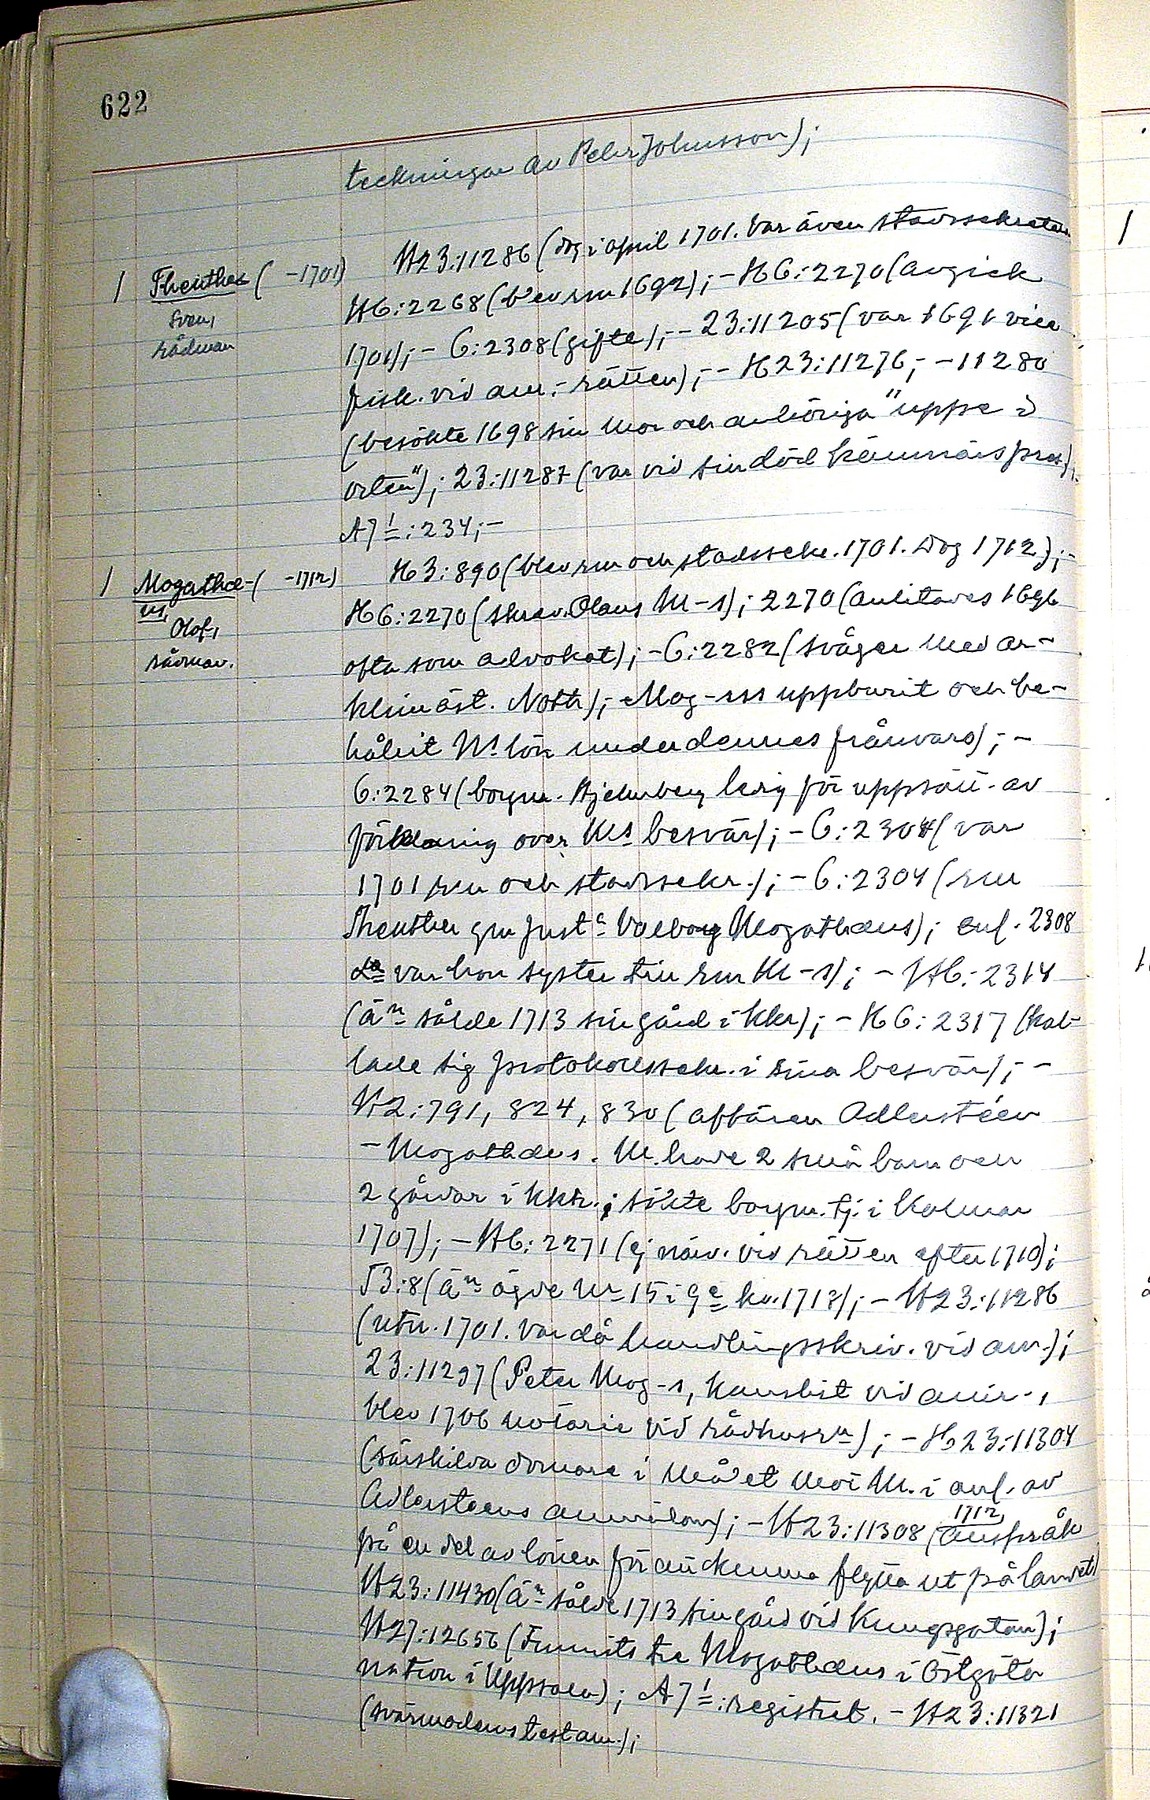 622
teckningar av Peter Johnsson);
1 Theuther ( -1701) H23:11286 (dog i april 1701. Var även stadssekreterare
Sven, H6:2268 (blev rm 1692); - H6:2270 (avgick
rådman 1701); - 6:2308 (gifte); - 23:11205 (var 1691 vice
fisk. vid am.-rätten); - H23:11276; - 11280
(besökte 1698 sin mor och anhöriga "uppe i
orten"); 23:11287 (var vid sin död kämnärs pres.);
A7 1:234; -
1 Mogathæ- ( -1712) H3:890 (blev rm och stadssekr. 1701. Dog 1712); -
us, H6:2270 (skrev. Olaus M-s); 2270 (anlitades 1696
Olof, ofta som advokat); - 6:2282 (svåger med ar-
rådman. klimäst. Noth); Mog-sss uppburit och be-
hållit Ns lön under dennes frånvaro); -
6:2284 (borgm. Hjelmberg ledig för uppsätt. av
förklaring över Ms besvär); - 6:2304 (var
1701 rm och stadssekr.); - 6:2304 (rm
Theuther gm just Valborg Mogathæus); enl. 2308
var hon syster till rm M-s); - H6:2314
(än sålde 1713 sin gård i kkr); - H6:2317 (kal-
lade sig protokollssekr. i sina besvär); -
H2:791, 824, 830 (affären Adlersteen
- Mogathæus. M. hade 2 små barn och
2 gårdar i kkr.; sökte borgm. tj. i Kalmar
1707); - H6:2271 (ej närv. vid rätten efter 1710);
53:8 (än ägde Nr 15 i 9e kv. 1718); - H23:11286
(utn. 1701. Var då handlingsskriv. vid am.);
23:11297 (Peter Mog-s, kanslist vid amir.,
blev 1706 notarie vid rådhusrn); - H23:11304
(särskilda domare i målet mot M. i anl. av
Adlersteens anmälan); - H23:11308 (1712 anspråk
på en del av lönen för att kunna flytta ut på landet)
H23:11430 (än sålde 1713 sin gård vid Kungsgatan);
H27:12656 (Funnits tre Mogathæus i Östgöta
nation i Uppsala); A7 1: registret. - H23:11321
(svärmoderns testam.);